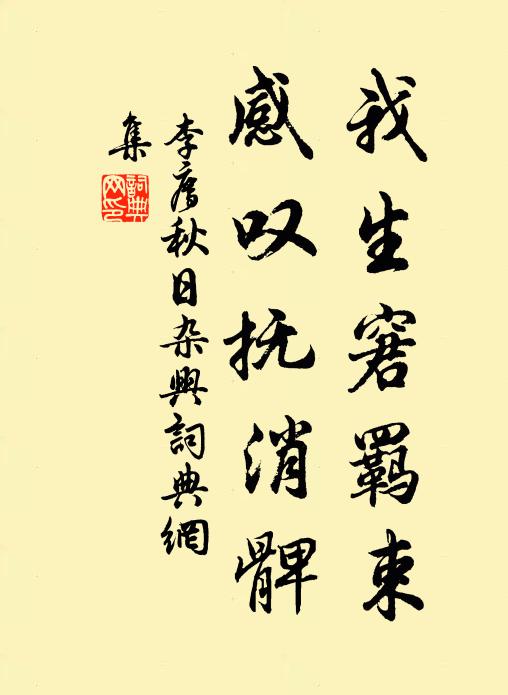 我生窘羈束
感叹抚消髀
李廌秋日杂興詞典網
集
詞典网印